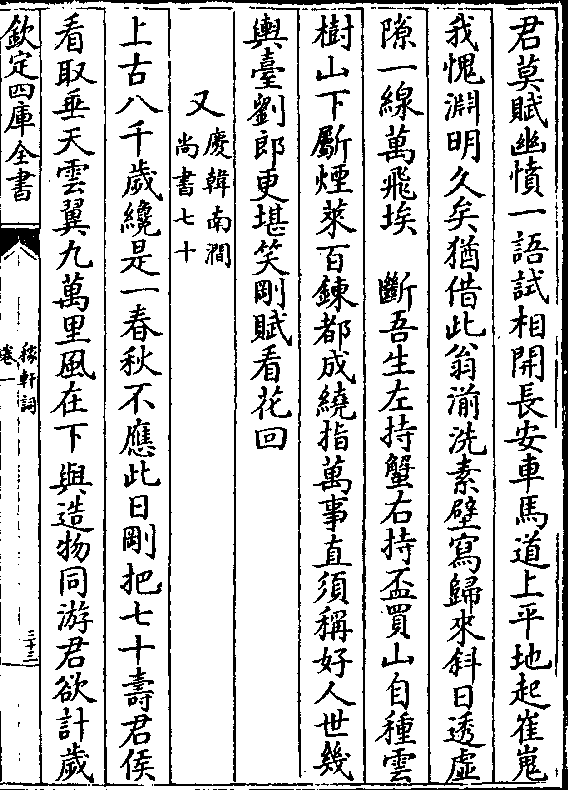 君莫賦幽憤一語試相開長安車馬道上平地起崔嵬
我愧淵明久矣猶借此翁湔洗素壁寫歸來斜日透虛
隙一線萬飛埃　斷吾生左持蟹右持盃買山自種雲
樹山下斸煙萊百鍊都成繞指萬事直須稱好人世幾
輿臺劉郎更堪笑剛賦看花回
又慶韓南澗尚書七十
上古八千歲纔是一春秋不應此日剛把七十壽君侯
看取垂天雲翼九萬里風在下與造物同游君欲計歲
欽定四庫全書
稼軒詞
卷一
三十三